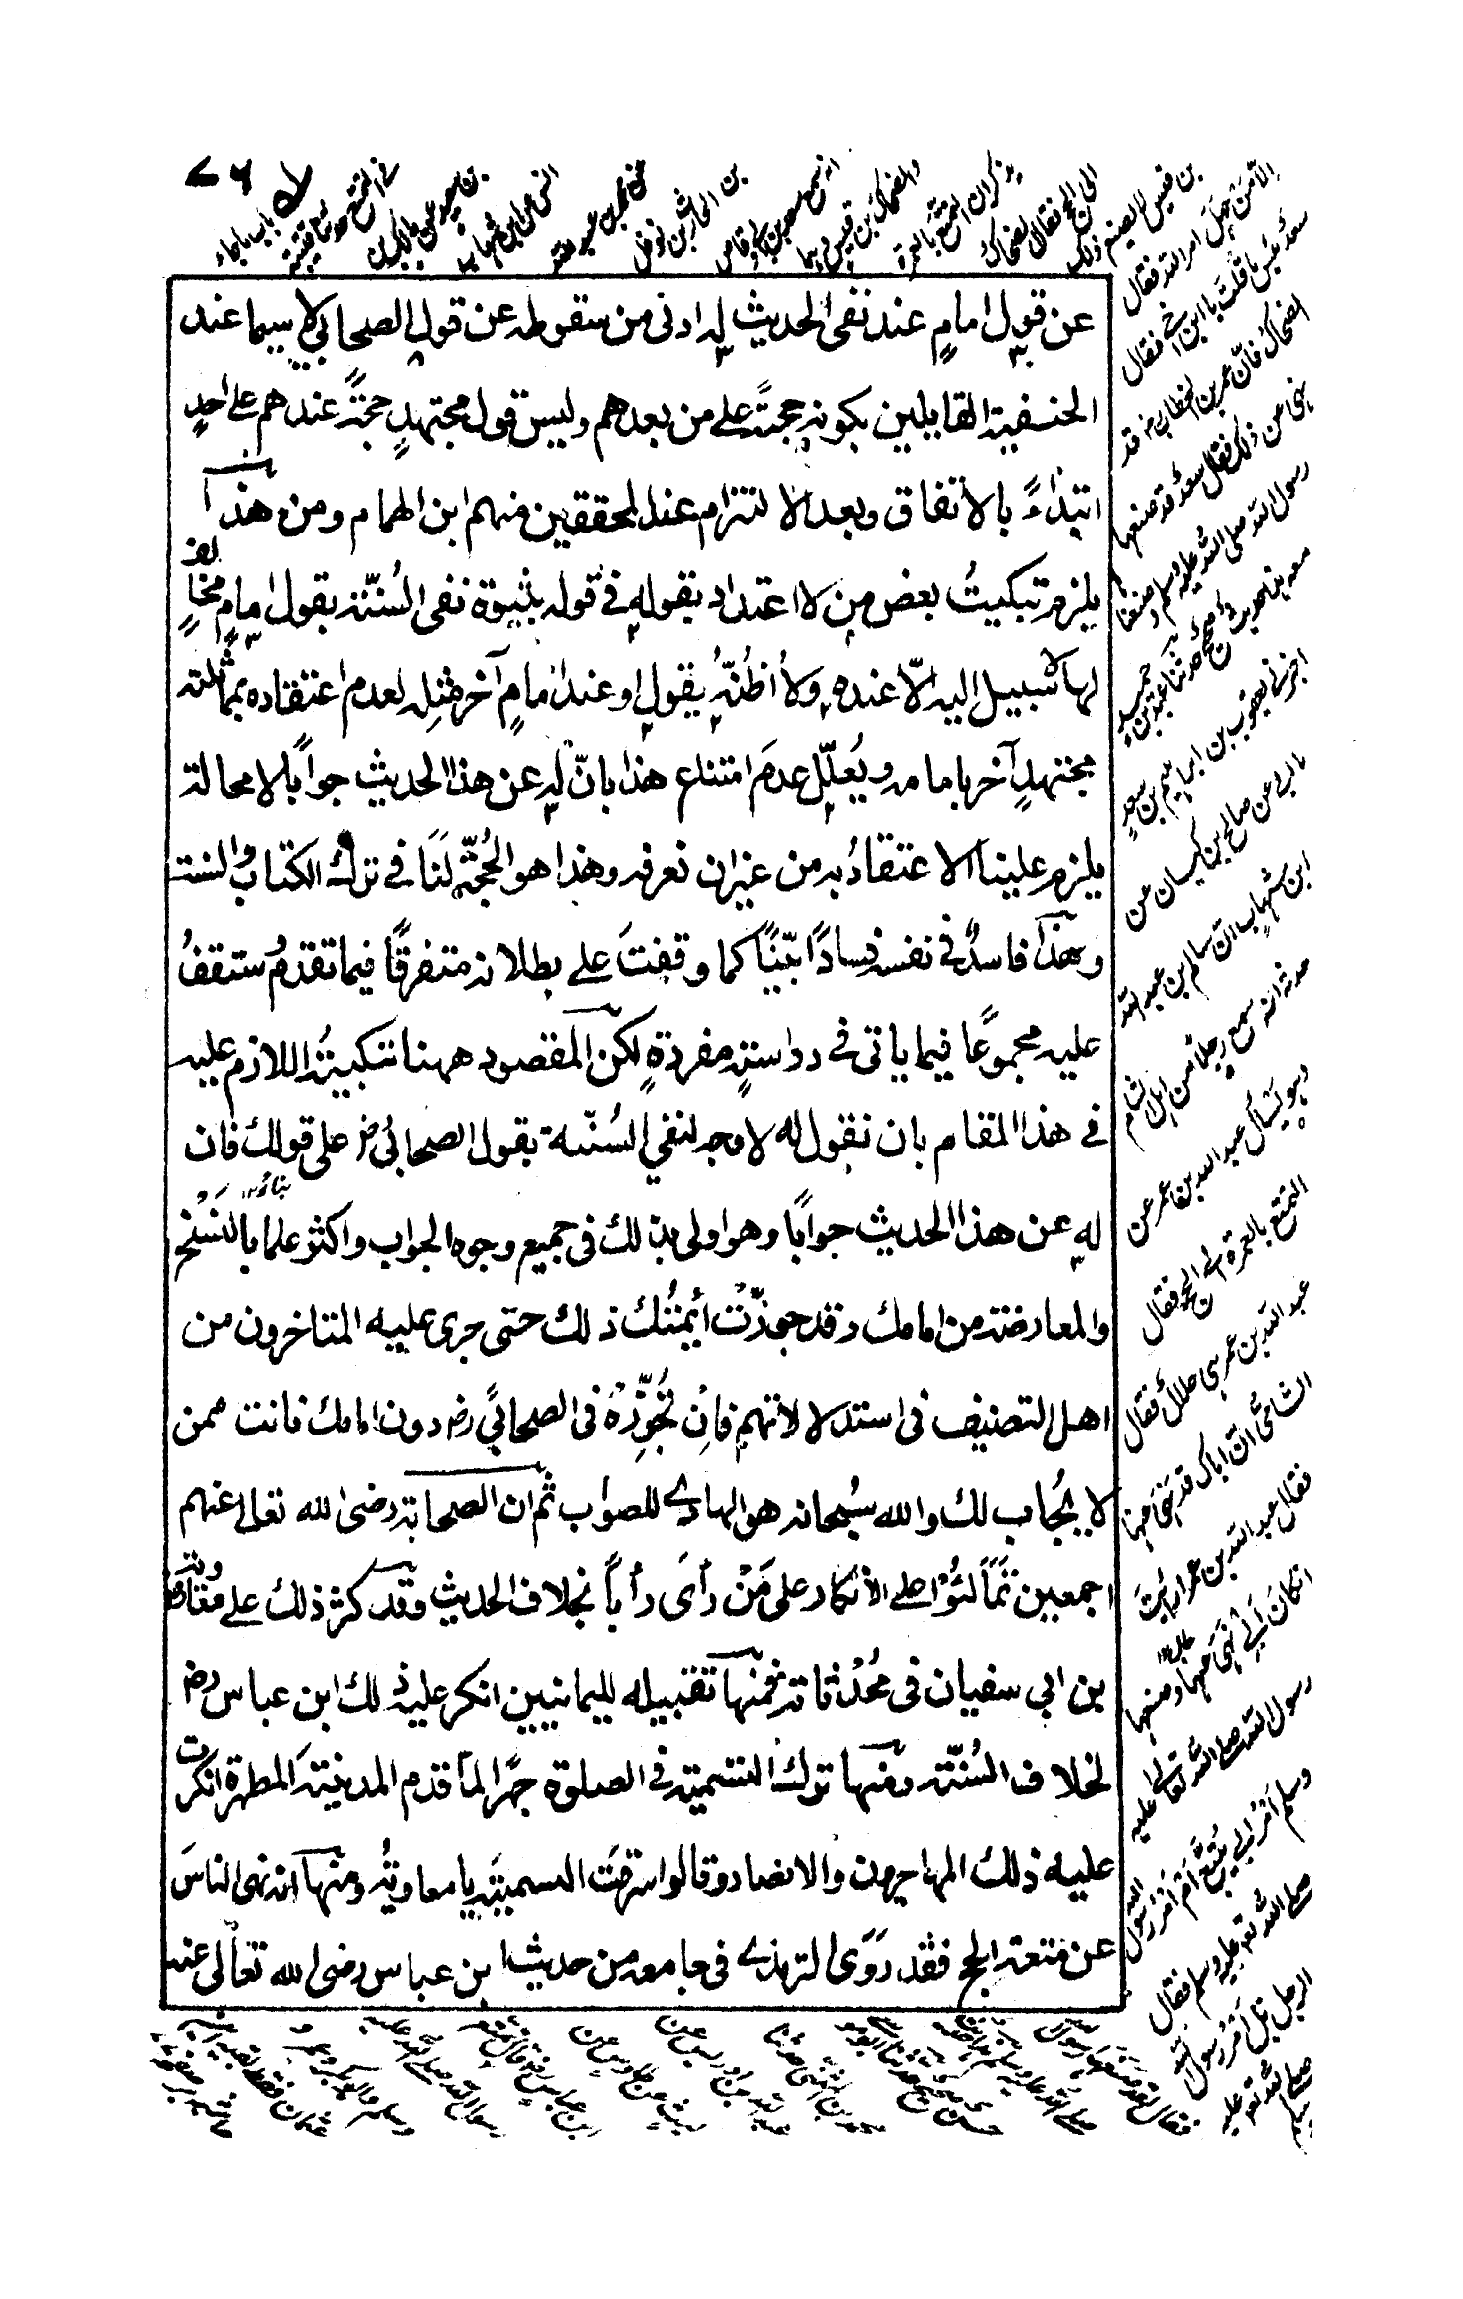 ٧٦
عن قول امامٍ عند نفى الحديث له ادنى من سقوطه عن قول الصحابي لا سيما عند
الحنفية القايلين بكونه حجةً على من بعدهم وليس قول مجتهدٍ حجةً عندهم على احدٍ
ابتداءً بالاتفاق وبعد الالتزام عند المحققين منهم ابن الهمام ومن هذا
يلزم تبكيتُ بعض من لا اعتداد بقوله في قوله بثبوة نفى السُنّة بقول امامٍ مخالفٍ
لها لا سبيل اليه الّا عنده ولا اظُنّهُ يقول او عند امامٍ آخر مثِله لعدم اعتقاده بمماثلة
مجتهدٍ آخر بامامه ويُعلّل عدمَ امتناع هذا بانّ له عن هذا الحديث جوابًا لا محالة
يلزم علينا الاعتقادُ به من غيران نعرفه وهذا هو الحُجّة لَنَا في ترك الكتاب والسنة
وهذا فاسدٌ في نفسه فسادًا بيّنًا كما وقفتَ على بطلانه متفرقًا فيما تقدمُ ستقفُ
عليه مجموعًا فيما ياتى في دراسةٍ مفردةٍ لكن المقصود ههنا تبكيتُه اللازم عليه
في هذا المقام بان نقول له لا وجه لنفي السُنّة بقول الصحابيُ رض على قولك فان
له عن هذا الحديث جوابًا وهو اولى بذلك في جميع وجوه الجواب واكثر علما بالنَسْخ
والمعارضة من امامك وقد جوّزت أئمتُك ذلك حتى جرى عليه المتاخرون من
اهل التصنيف في استدلالاتهم فانْ تُجوّزهُ في الصحابيِّ رض دون امامك فانت ممن
لا يُجاب لك والله سُبحانه هو الهادي للصواب ثم ان الصحابة رضى الله تعالى عنهم
اجمعين تَمَالَئُوْا على الانكار على مَنْ رأى رأياً بخلاف الحديث وقد كثر ذلك على معاوية
بن ابي سفيان في مُحْدثاته فمنها تقبيله لليمانيين انكر عليه ذلك ابن عباس رض
لخلاف السُنّة ومنها ترك التسمية في الصلوة جهرًا لما قدم المدينة المطهرة انكرت
عليه ذلك المهاجرون والانصار وقالوا سرقتَ التسميةَ يا معاويةُ ومنها انه نهى الناسَ
عن متعة الحج فقد رَوَى الترمذي في جامعه من حديث ابن عباس رضى الله تعالى عنه
باب ما جاء
في التمتع حدثنا قتيبة
بن سعيد عن مالك بن
انس عن ابن شهاب
عن محمد بن عبد الله
بن الحارث بن نوفل
انه سمع سعد بن ابي وقاص
والضحاك بن قيس وهما
يذكران التمتع بالعمرة
الى الحج فقال الضحاك
بن قيس لا يصنع ذلك
الا من جهل امر الله فقال
سعد بئس ما قلت يا ابن اخي فقال
الضحاك فانّ عمر بن الخطاب رض قد
نهى عن ذلك فقال سعد قد صنعها
رسول الله صلى الله عليه وسلم وصنعناها
معه هذا حديث صحيح حدثنا عبد بن حميدٍ
اخبرني يعقوب بن ابراهيم بن سعدٍ
نا ابي عن صالح بن كيسان عن
ابن شهاب ان سالم بن عبد الله
حدثه انه سمع رجلا من اهل الشام
وهو يسأل عبد الله بن عمر عن
التمتع بالعمرة الى الحج فقال
عبد الله بن عمر هي حلال فقال
الشاميُّ انّ اباك قد نهى عنها
فقال عبد الله بن عمر ارايتَ
ان كان ابي نهى عنها وصنعها
رسول الله صلى الله تعالى عليه
وسلم أمر ابي يُتّبع ام امر رسول الله
صلى الله تع عليه وسلم فقال
الرجل بل امر رسول الله
صلى الله تع عليه وسلم
فقال لقد صنعها رسول الله
صلى الله عليه وسلم